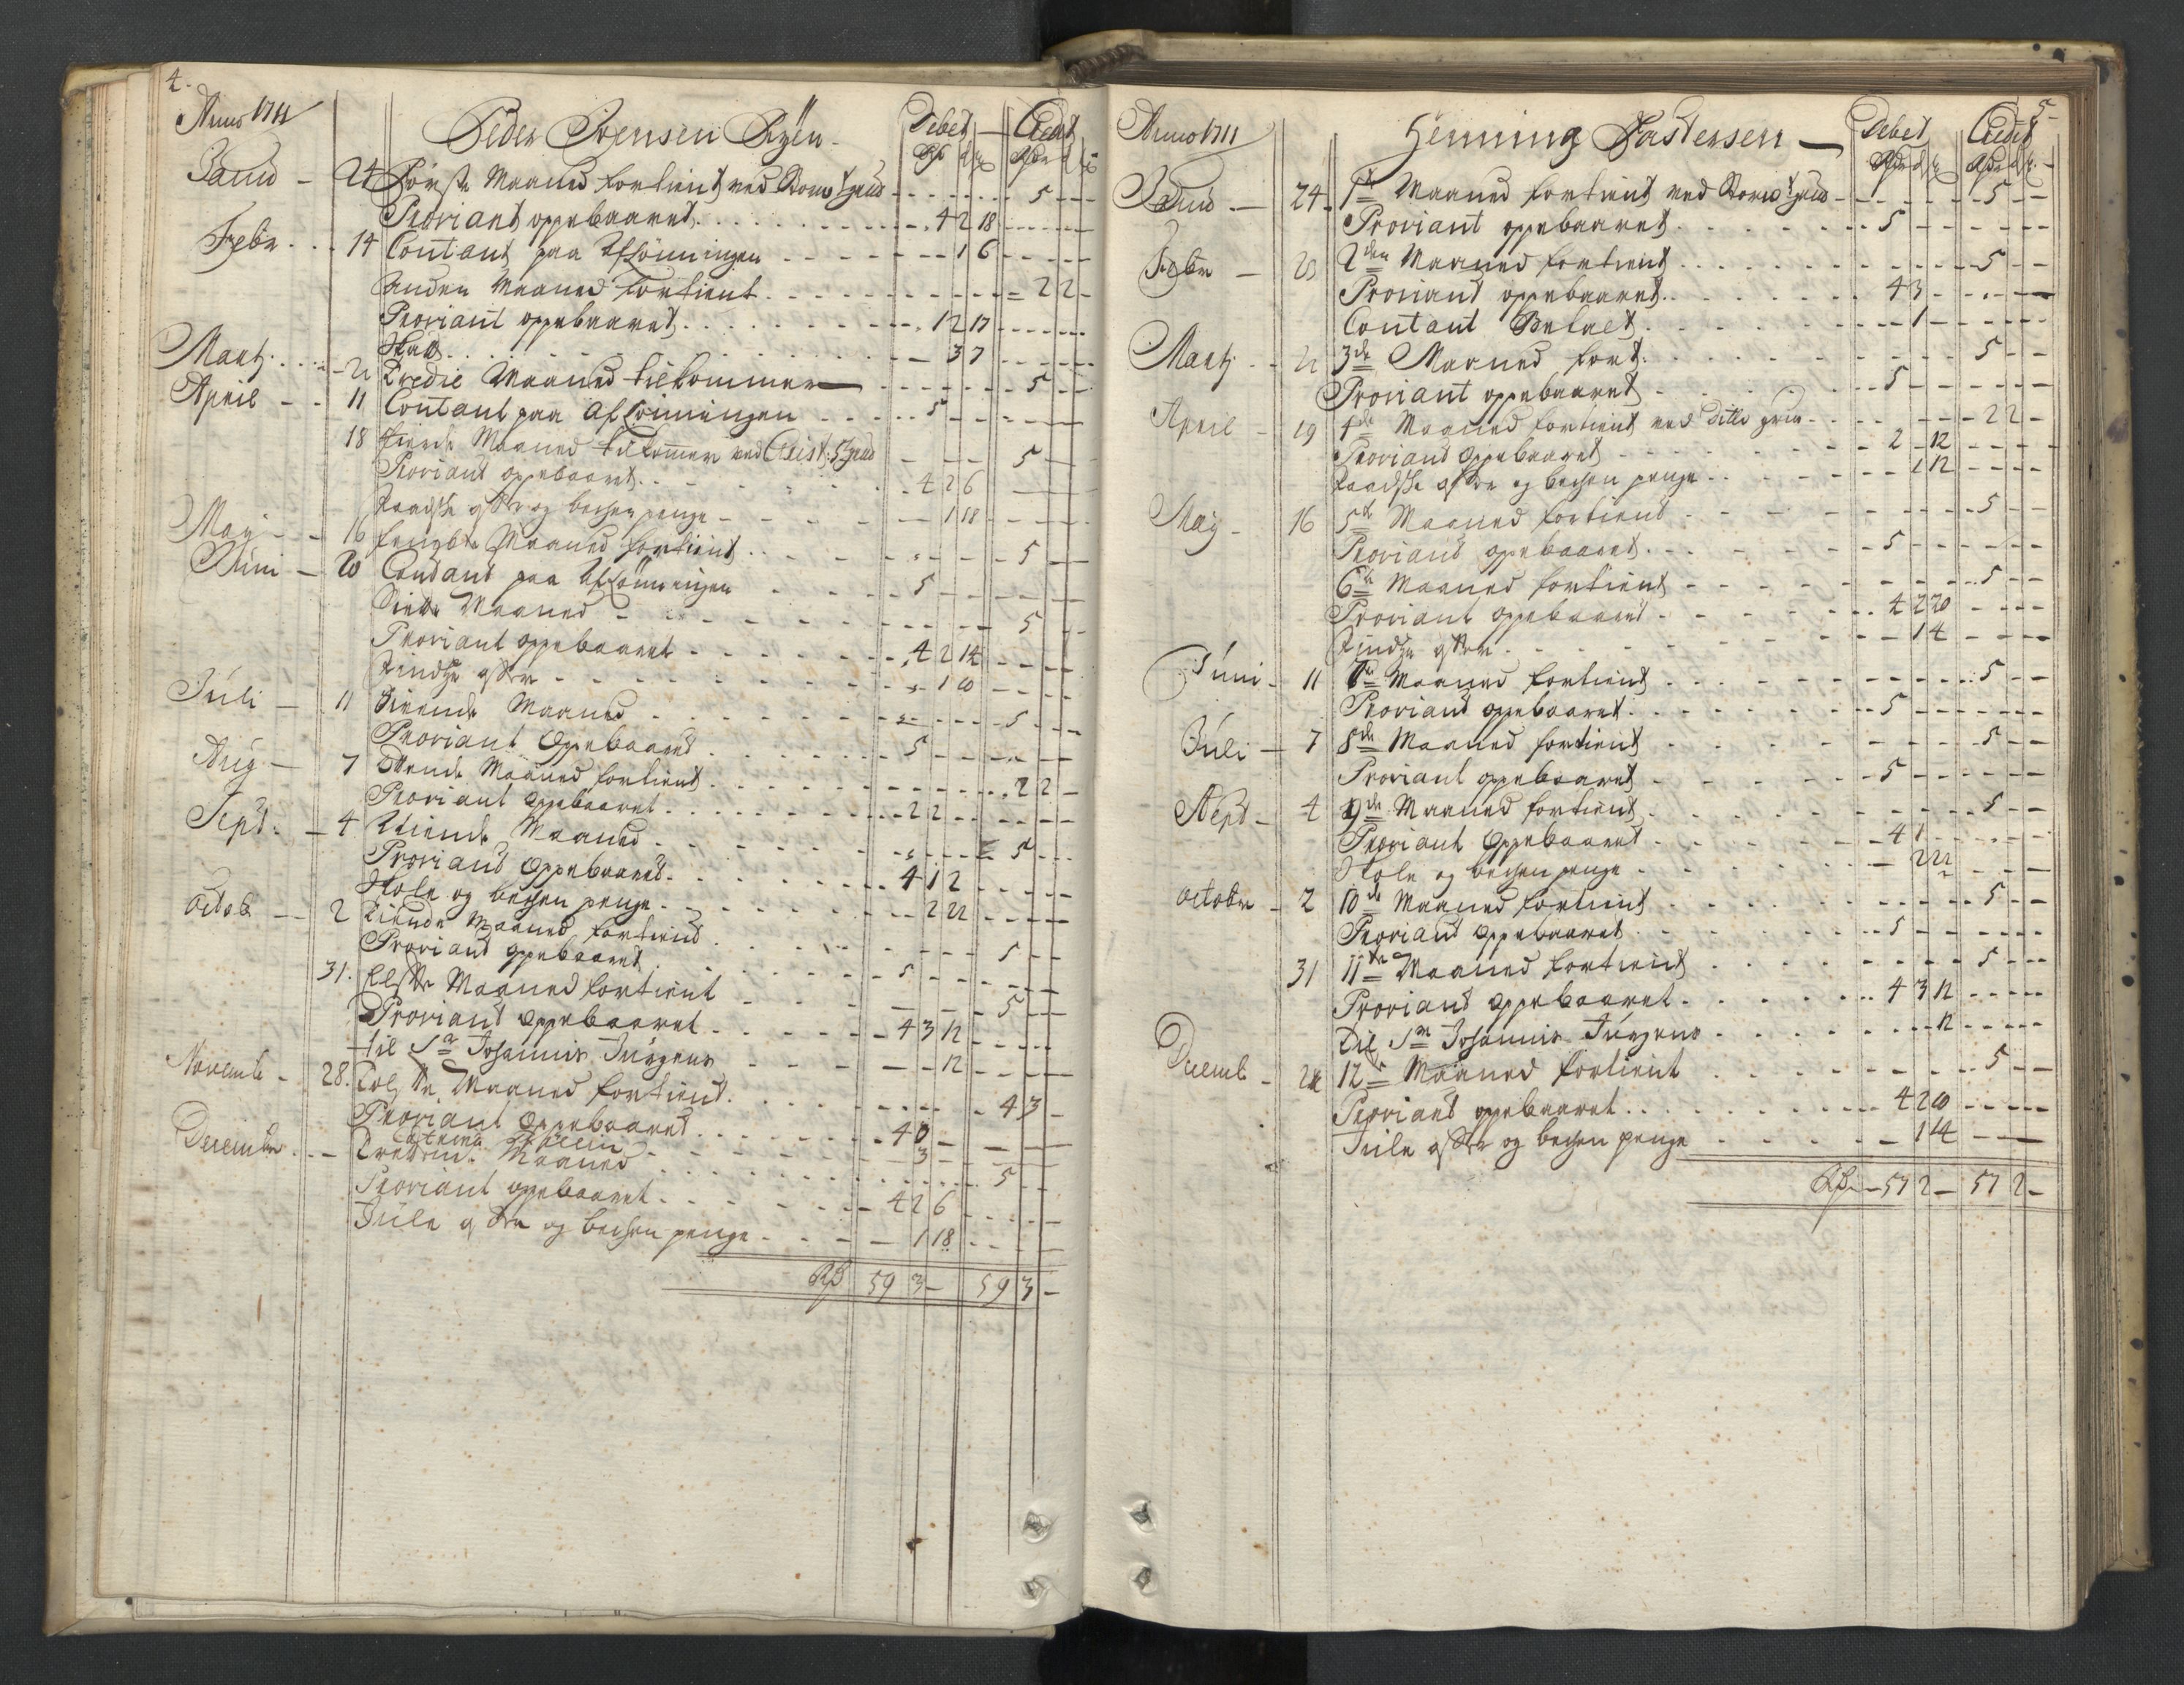 4.
Anno 1711
Peder Svensen Ryen.
Debet Credit
Janu - 24 Første Maaned fortient ved Kon: 5
Proviant oppebaaret 4 2 18
Febr. 14 Contant paa Afløningen 1 6
Anden Maaned fortient 2 2 -
Proviant oppebaaret 1 2 17
3 7
Martj. 21 Tredie Maaned tilkommer 5
April 11 Contant paa Afløningen 5
18 Fierde Maaned tilkommer ved Christ: 5
Proviant oppebaaret 4 2 6
og bechen penge 1 18
Maj 16 Femte Maaned fortient 5
Juni 20 Contant paa Afløningen 5
Siette Maaned 5
Proviant oppebaaret 4 2 14
1 10
Juli 11 Siuende Maaned 5
Proviant Oppebaaret 5
Aug 7 Ottende Maaned fortient 2 2 -
Proviant oppebaaret 2 2
Sept. 4 Niende Maaned 5
Proviant oppebaaret 4 1 2
Skole og bechen penge 2 22
octob 2 Tiende Maaned fortient 5
Proviant oppebaaret 5
31. Elfte Maaned fortient 5
Proviant oppebaaret 4 3 12
til Sr Johannis Jürgens 12
Novemb 28. Tolfte Maaned fortient 4 3 -
Proviant Oppebaaret 4 0 -
3
December Trettende Maaned 5
Proviant oppebaaret 4 2 6
Jule offer og bechen penge 1 18
Rd 59 3 - 59 3 -
5
Anno 1711
Henning Castensen
Debet Credit
Janu 24 1te Maaned fortient ved Kon: 5
Proviant oppebaaret 5
Febr 2den Maaned fortient 5
Proviant oppebaaret 4 3
Contant Betalt 1
Martj 21 3de Maaned fort: 5
Proviant oppebaaret 5
April 19 4de Maaned fortient ved ditto 2 2 -
Proviant Oppebaaret 2 - 12
og bechen penge 1 12
Maj 16 5te Maaned fortient 5
Proviant oppebaaret 5
6te Maaned fortient 5
Proviant oppebaaret 4 2 20
1 4
Juni 11 Maaned fortient 5
Proviant oppebaaret 5
Juli 7 8de Maaned fortient 5
Proviant oppebaaret 5
Sept 4 9de Maaned fortient 5
Proviant Oppebaaret 4 1
Skole og bechen penge 2 22
octobr 2 10de Maaned fortient 5
Proviant oppebaaret 5
31 11te Maaned fortient 5
Proviant oppebaaret 4 3 12
Til Sr Johannis Jürgens 12
Decemb 12te Maaned fortient 5
Proviant oppebaaret 4 2 10
Jule offer og bechen penge 1 14
Rdr 57 2 - 57 2 -